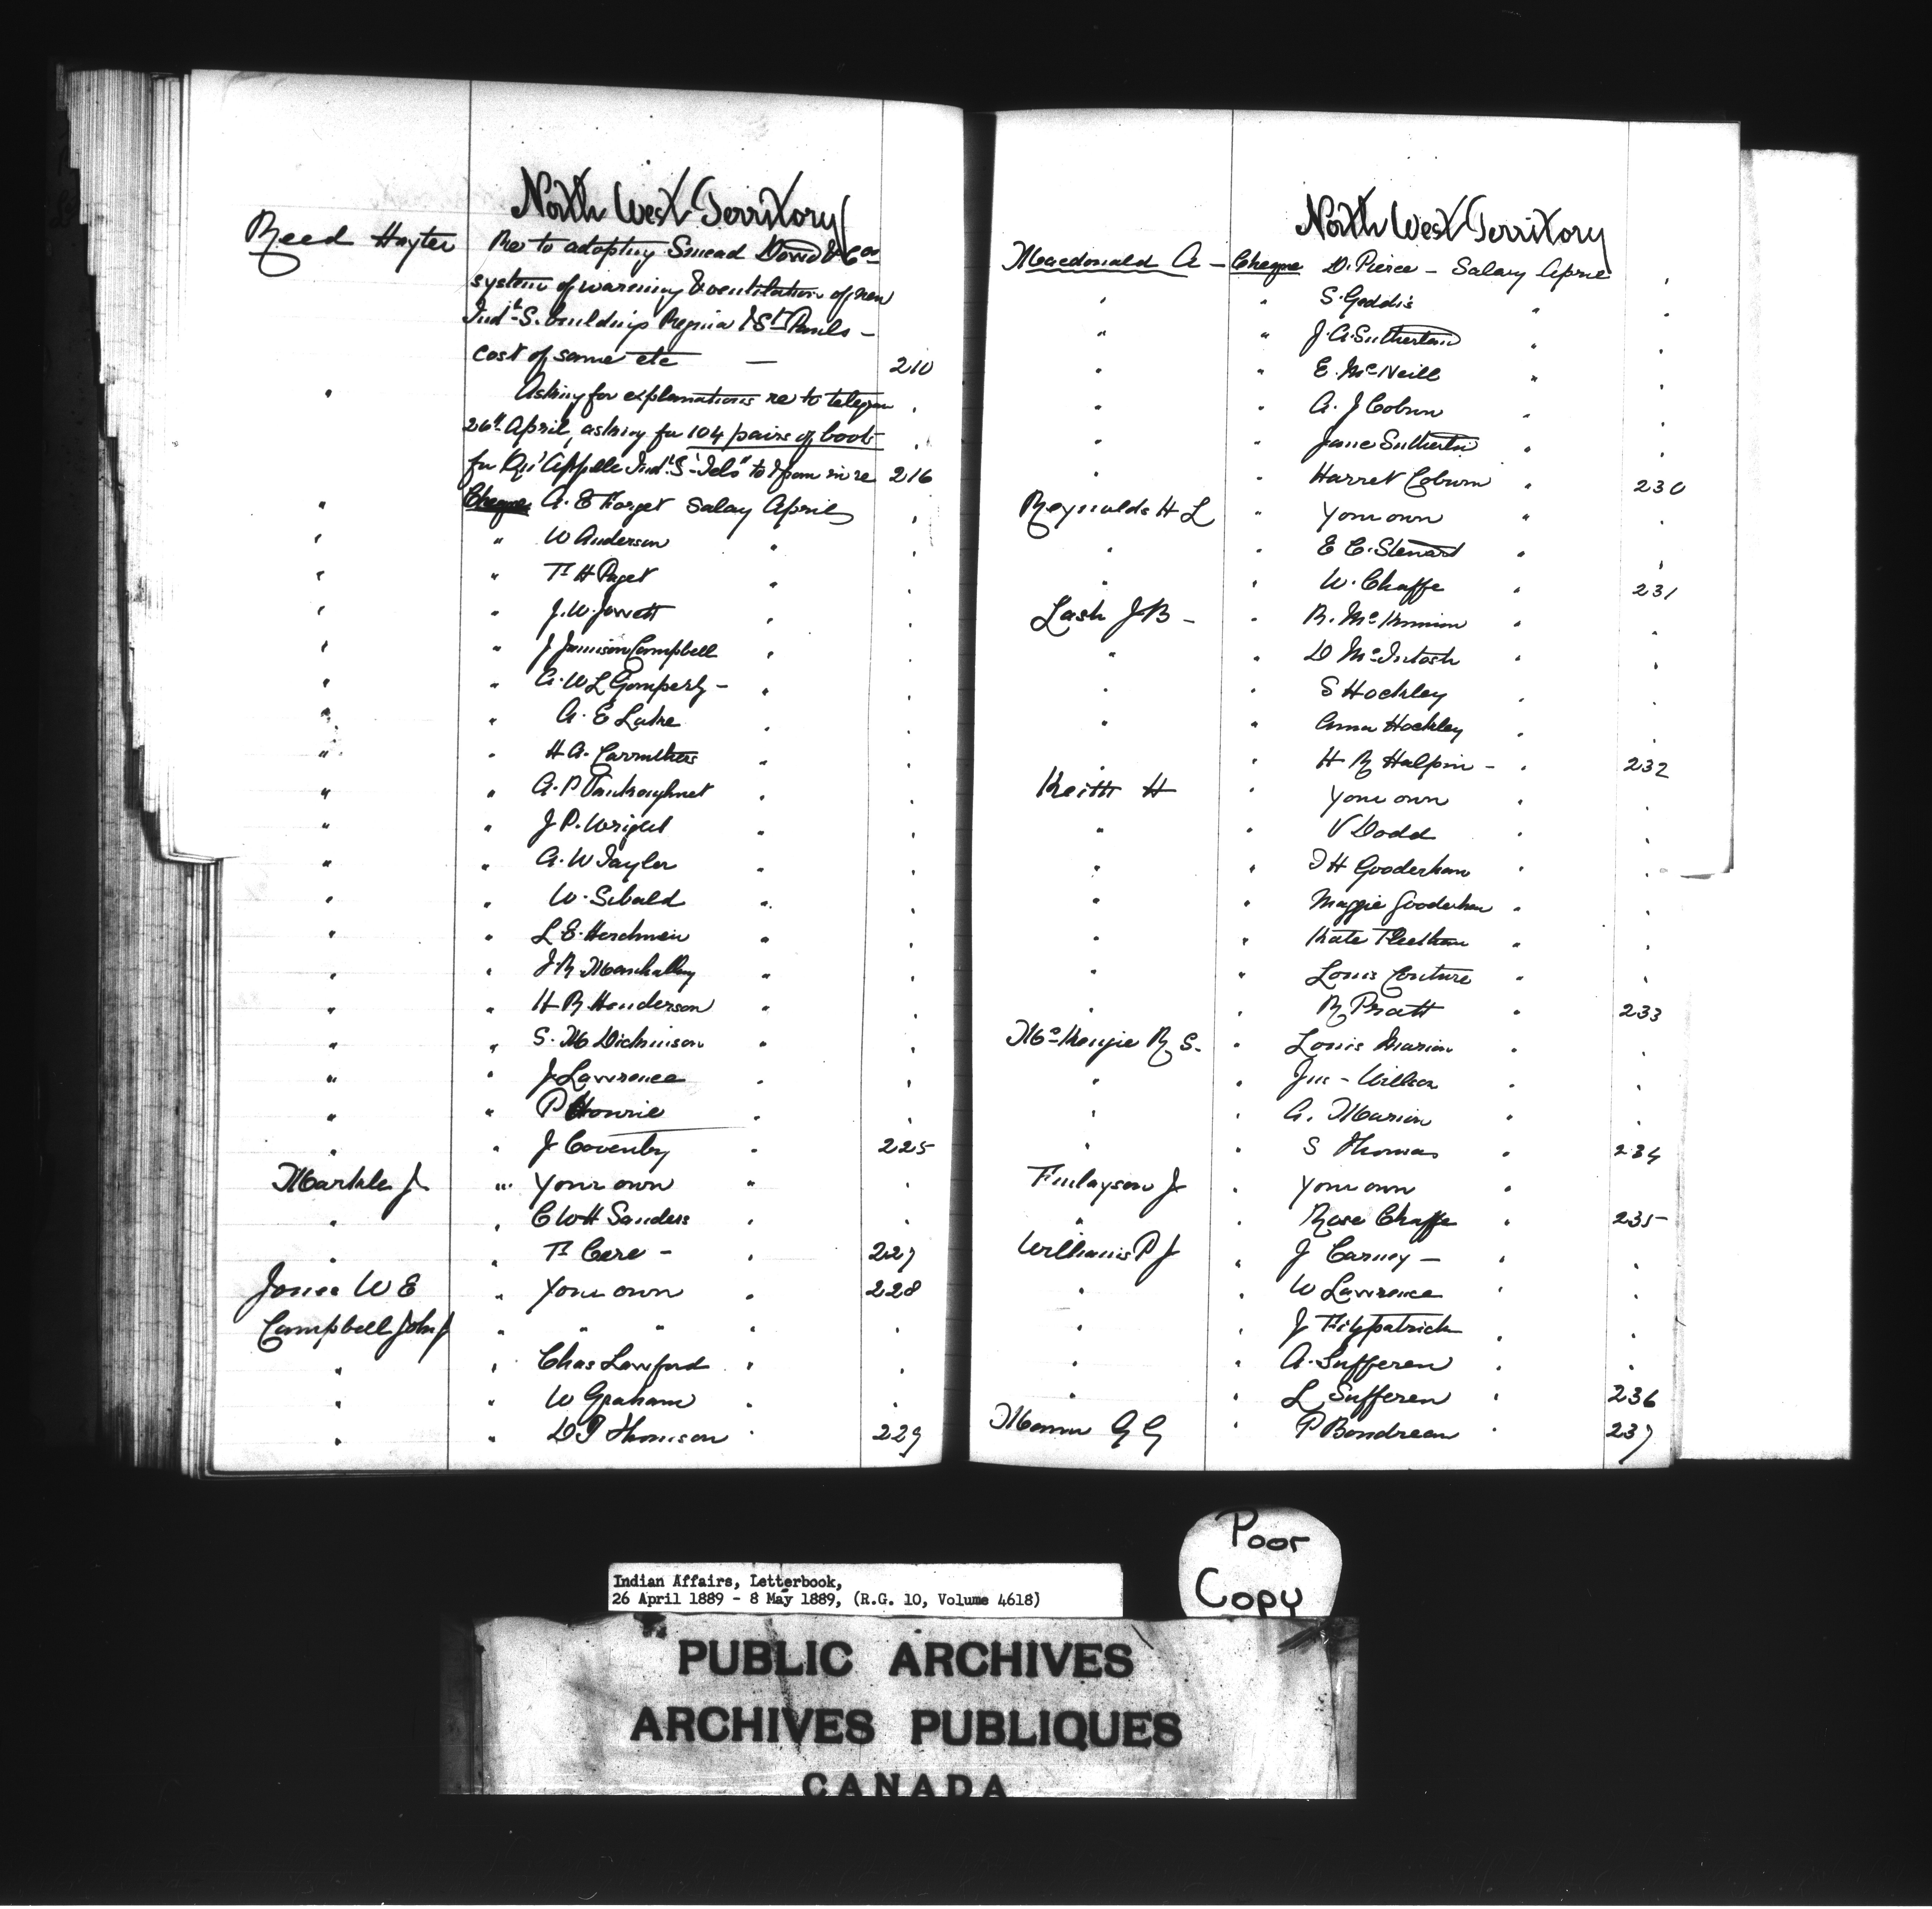 North West Territory
Reed Hayter Re to adopting Smead Dowd & Coos
system of warming & ventilation of new
Indl S. buildings Regina & St Pauls -
cost of same etc — 210
" Asking for explanations re to telegram
26th April, asking for 104 pairs of boots
for Qu'Appelle Indl S - Tels to & from in re 216
" Cheque A. E Forget Salary April
" " W Anderson "
" " T H Paget "
" " J. W. Jowett "
" " J Jamison Campbell "
" " A. W L Gomperly - "
" " A. E Lake "
" " H A. Carruthers "
" " A. P Vankoughnet "
" " J P. Wright "
" " A. W Taylor "
" " W. Sibald "
" " L E. Herchmer "
" " J. R Marshallsay "
" " H R Henderson "
" " S. M Dickinson "
" " J Lawrence "
" " P Hourie "
" " J Coventry " 225
Markle J " Your own "
" " C W H Sanders "
" " T Cere - " 227
Jones W E " Your own " 228
Campbell John J " " " "
" " Chas Lawford "
" " W Graham "
" " D J Thomson " 229
North West Territory
Macdonald A - Cheque D. Pierce - Salary April
" " S. Geddis "
" " J. A. Sutherland "
" " E. McNeill "
" " A. J Coburn "
" " Jane Sutherland "
" " Harret Coburn " 230
Reynolds H L " Your own "
" " E C. Stewart "
" " W. Chaffe " 231
Lash J B - " R. McKinnon "
" " D McIntosh "
" " S Hockley "
" " Anna Hockley "
" " H R Halpin - " 232
Keith H " Your own "
" " V Dodd "
" " J H Gooderham "
" " Maggie Gooderham "
" " Kate Fleetham "
" " Louis Couture "
" " R Pratt " 233
McKenzie R S. " Louis Marion "
" " Jno - Willson "
" " A. Marion "
" " S Thomas " 234
Finlayson J " Your own "
" " Rose Chaffe " 235
Williams P J " J Carney - "
" " W Lawrence "
" " J Fitzpatrick "
" " A. Sufferen "
" " L Sufferen " 236
Mann G G " P Bondreau " 237
Poor
Copy
Indian Affairs, Letterbook,
26 April 1889 - 8 May 1889, (R.G. 10, Volume 4618)
PUBLIC ARCHIVES
ARCHIVES PUBLIQUES
CANADA